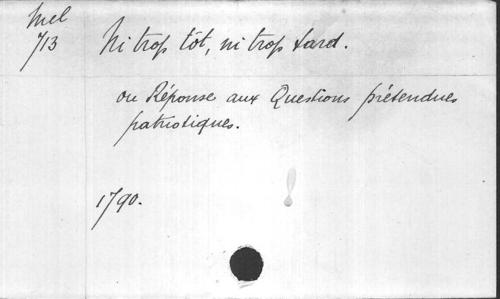 Mel
713
Ni trop tôt, ni trop tard.
ou Réponse aux Questions prétendues
patriotiques.
1790.